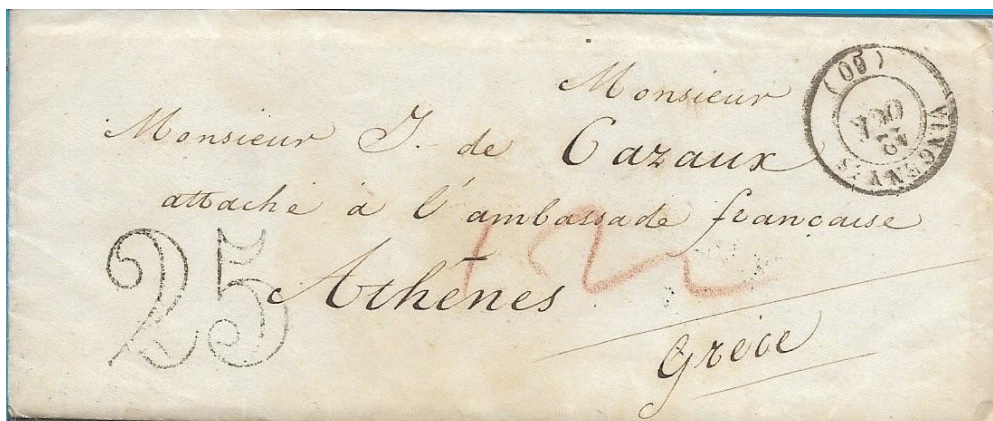 Monsieur
Monsieur J. de Cazaux
attaché à l'ambassade française
Athènes
Grèce
25
12
(60)